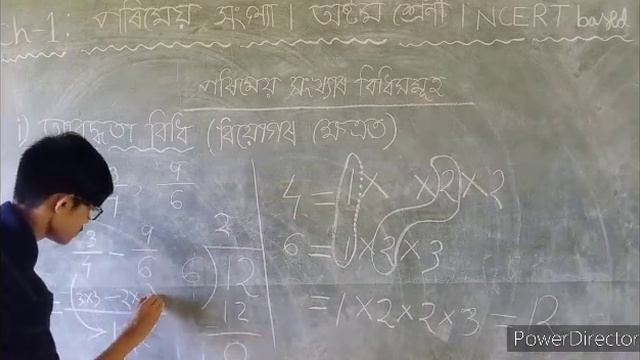 Ch-1: পৰিমেয় সংখ্যা। অষ্টম শ্ৰেণী। NCERT based
পৰিমেয় সংখ্যাৰ বিধিসমূহ
i) আবদ্ধতা বিধি (বিয়োগৰ ক্ষেত্ৰত)
9/6
3/4 - 9/6
(3×3 - 2×
4 = 1× ×2×2
6 = 1×3×3
= 1×2×2×3 = 12
2
6)12
12
0
PowerDirector